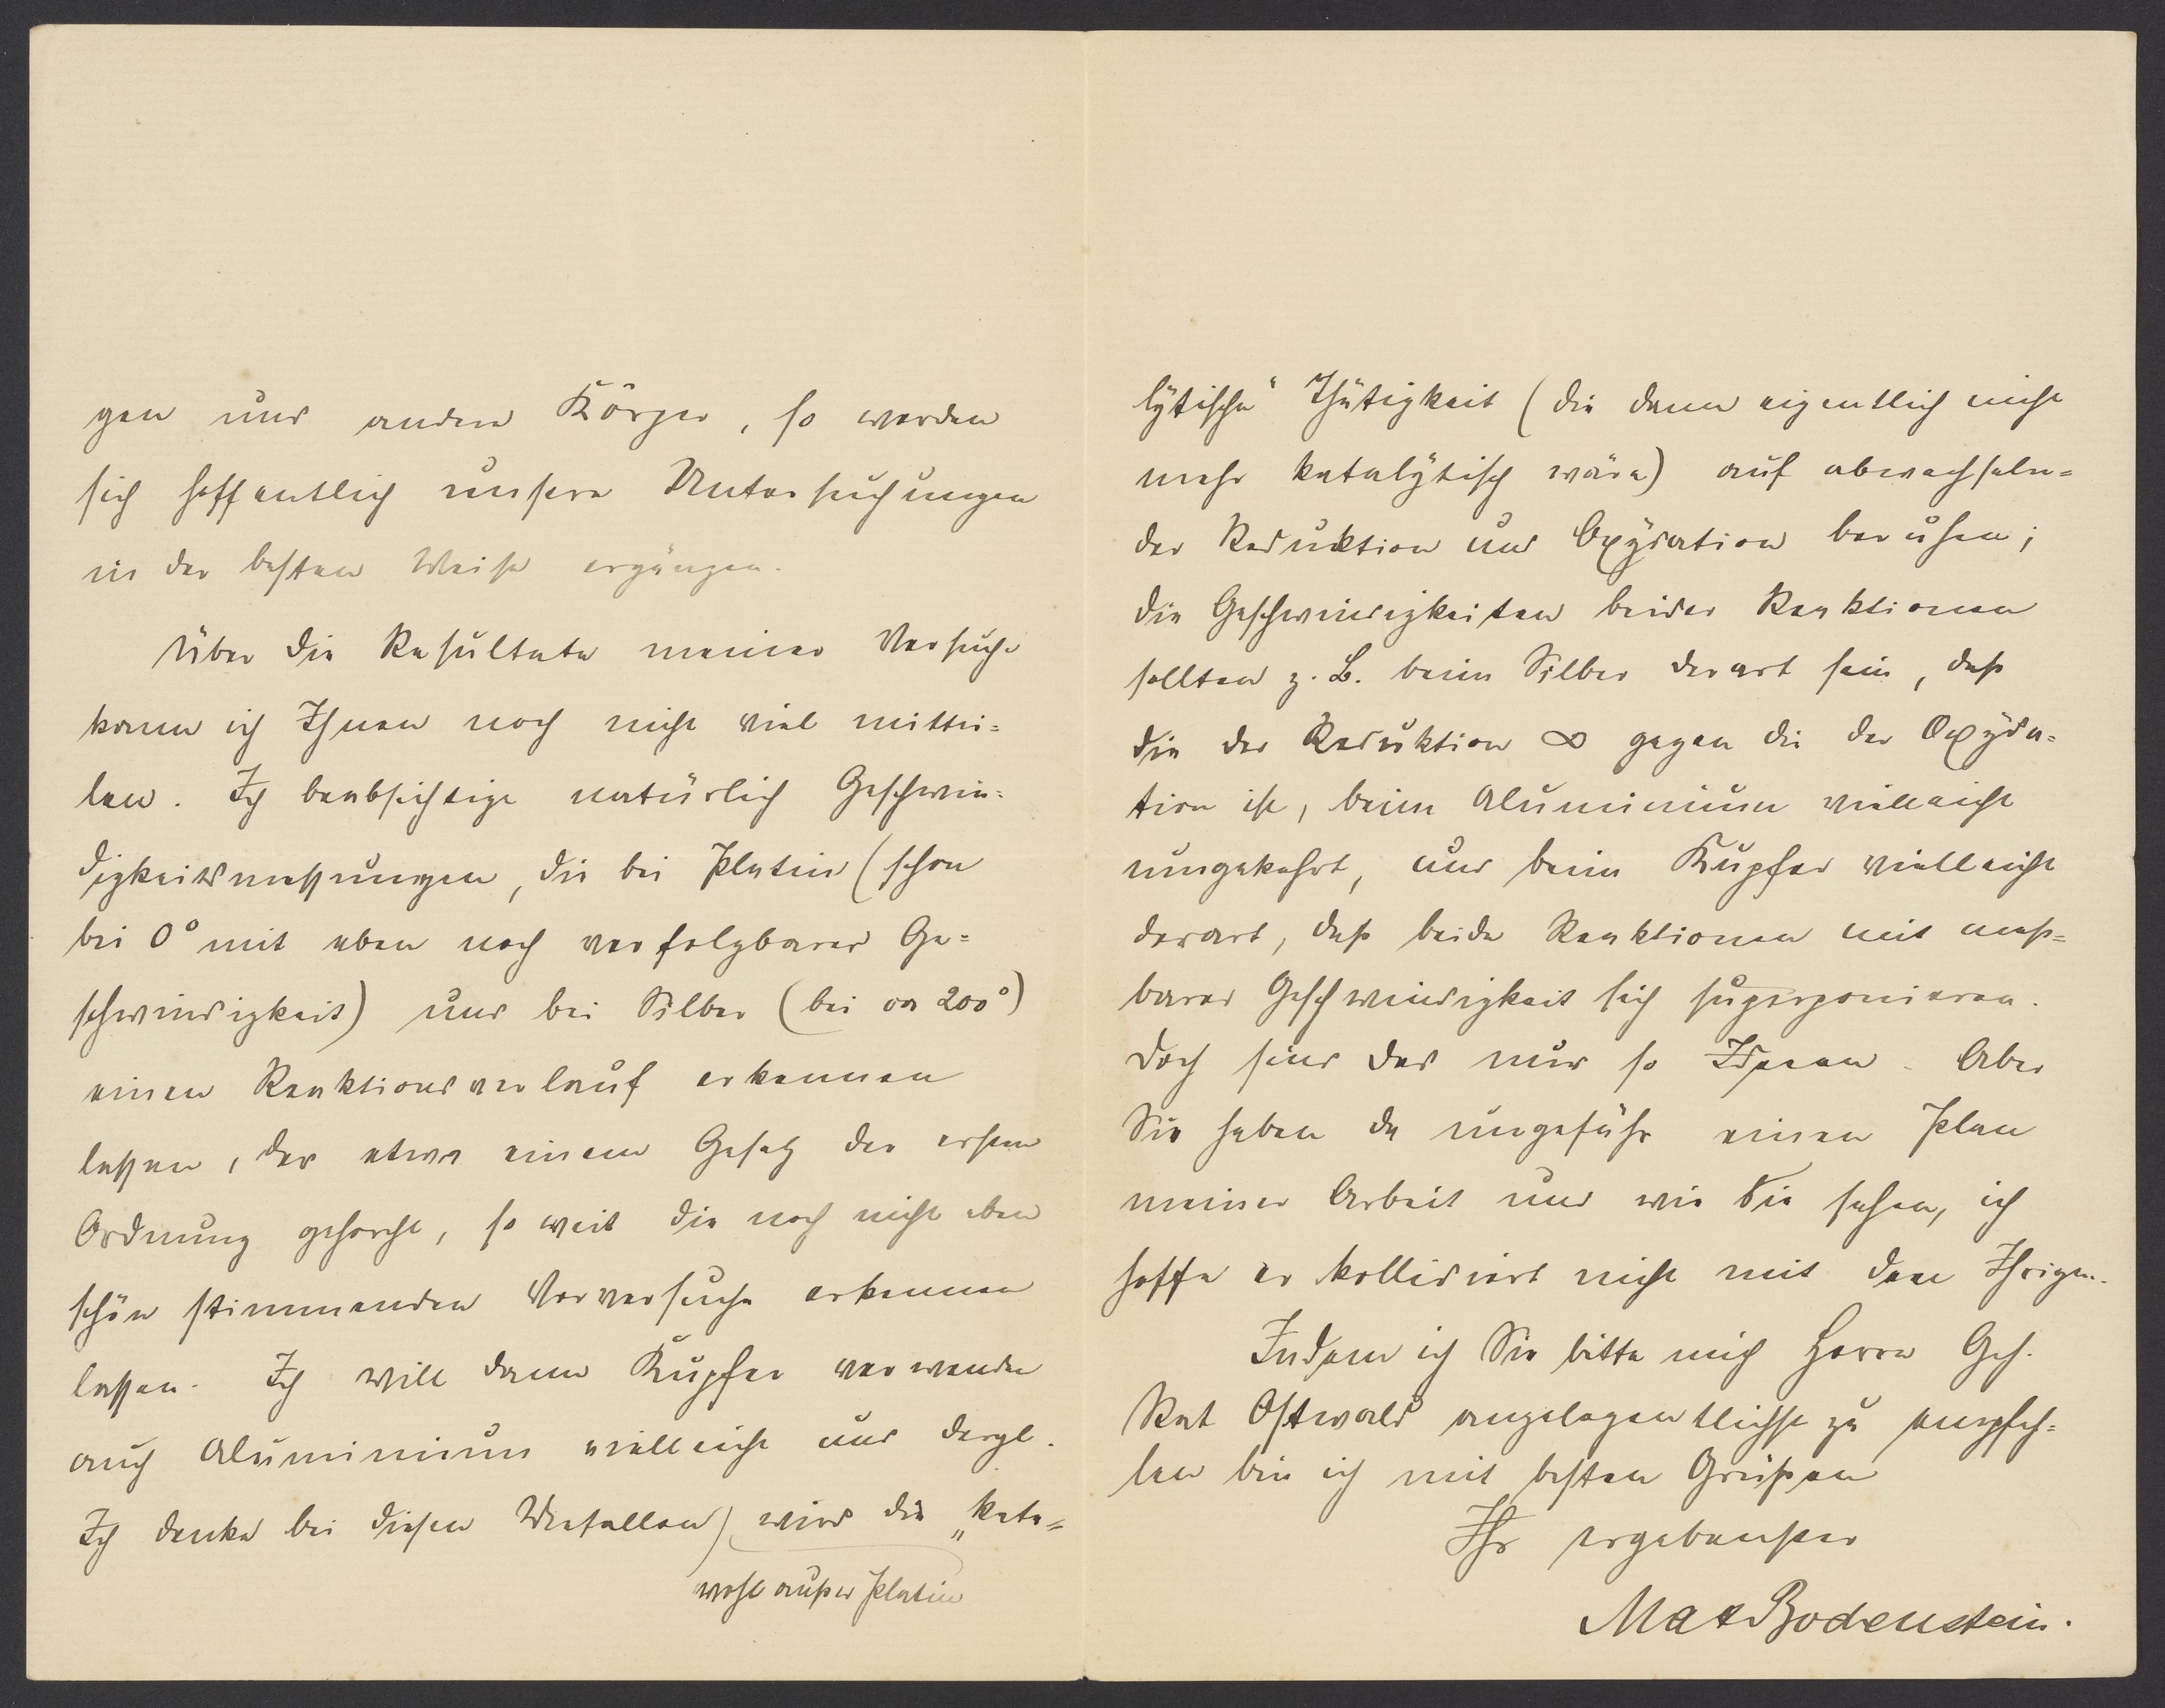 gen und andere Körper, so werden
sich hoffentlich unsere Untersuchungen
in der besten Weise ergänzen.
Über die Resultate meiner Versuche
kann ich Ihnen noch nicht viel mittei=
len. Ich beabsichtige natürlich Geschwin=
digkeitsmessungen, die bei Platin (schon
bei 0° mit eben noch verfolgbarer Ge=
schwindigkeit) und bei Silber (bei ca 200°)
einen Reaktionsverlauf erkennen
lassen, der etwa einem Gesetz der ersten
Ordnung gehorcht, so weit die noch nicht eben
schön stimmenden Vorversuche erkennen
lassen. Ich will dann Kupfer verwenden
auch Aluminium vielleicht und dergl.
Ich denke bei diesen Metallen) wird die „kata=
wohl außer Platin
lytische“ Thätigkeit (die dann eigentlich nicht
mehr katalytisch wäre) auf abwechseln=
der Reduktion und Oxydation beruhen;
die Geschwindigkeiten beider Reaktionen
sollten z. B. beim Silber derart sein, daß
die der Reduktion ∞ gegen die der Oxyda=
tion ist, beim Aluminium vielleicht
umgekehrt, und beim Kupfer vielleicht
derart, daß beide Reaktionen mit meß=
barer Geschwindigkeit sich superponieren.
Doch sind das nur so Ideeen. Aber
Sie haben da ungefähr einen Plan
meiner Arbeit und wie Sie sehen, ich
hoffe er kollidiert nicht mit dem Ihrigen.
Indem ich Sie bitte mich Herrn Geh.
Rat Ostwald angelegentlichst zu empfeh=
len bin ich mit besten Grüßen
Ihr ergebenster
Max Bodenstein.